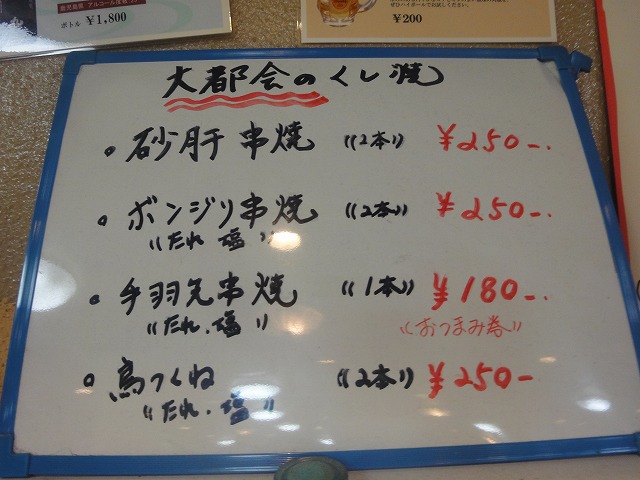 ボトル ¥1,800
¥200
大都会のくし焼
砂肝串焼 (2本) ¥250-.
ボンジリ串焼 (2本) ¥250-.
"たれ 塩"
手羽先串焼 (1本) ¥180-.
"たれ.塩" "おつまみ券"
鳥つくね (2本) ¥250-
"たれ.塩"